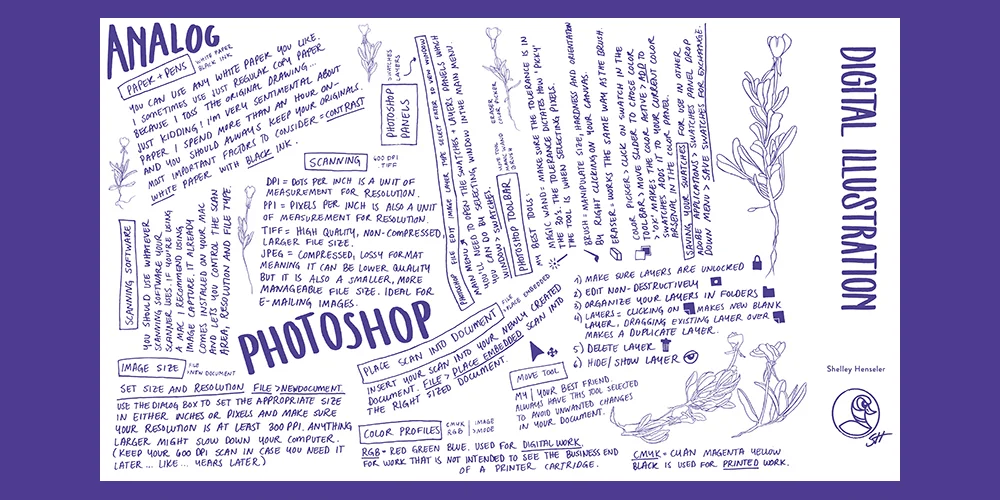 ANALOG
PAPER + PENS
WHITE PAPER
BLACK INK
YOU CAN USE ANY WHITE PAPER YOU LIKE.
I SOMETIMES USE JUST REGULAR COPY PAPER
BECAUSE I TOSS THE ORIGINAL DRAWING...
JUST KIDDING! I'M VERY SENTIMENTAL ABOUT
PAPER I SPEND MORE THAN AN HOUR ON-
AND YOU SHOULD ALWAYS KEEP YOUR ORIGINALS.
MOST IMPORTANT FACTORS TO CONSIDER = CONTRAST
WHITE PAPER WITH BLACK INK.
SCANNING
600 DPI
TIFF
DPI = DOTS PER INCH IS A UNIT OF
MEASUREMENT FOR RESOLUTION.
PPI = PIXELS PER INCH IS ALSO A UNIT
OF MEASUREMENT FOR RESOLUTION.
TIFF = HIGH QUALITY, NON-COMPRESSED,
LARGER FILE SIZE.
JPEG = COMPRESSED, LOSSY FORMAT
MEANING IT CAN BE LOWER QUALITY
BUT IT IS ALSO A SMALLER, MORE
MANAGEABLE FILE SIZE. IDEAL FOR
E-MAILING IMAGES.
SCANNING SOFTWARE
YOU SHOULD USE WHATEVER
SCANNING SOFTWARE YOUR
SCANNER USES. IF YOU'RE USING
A MAC, I RECOMMEND USING
IMAGE CAPTURE. IT ALREADY
COMES INSTALLED ON YOUR MAC
AND LETS YOU CONTROL THE SCAN
AREA, RESOLUTION AND FILE TYPE
PHOTOSHOP
IMAGE SIZE
FILE
>NEW DOCUMENT
SET SIZE AND RESOLUTION FILE >NEWDOCUMENT
USE THE DIALOG BOX TO SET THE APPROPRIATE SIZE
IN EITHER INCHES OR PIXELS AND MAKE SURE
YOUR RESOLUTION IS AT LEAST 300 PPI. ANYTHING
LARGER MIGHT SLOW DOWN YOUR COMPUTER.
(KEEP YOUR 600 DPI SCAN IN CASE YOU NEED IT
LATER... LIKE... YEARS LATER.)
PHOTOSHOP
PANELS
SWATCHES
LAYERS
PHOTOSHOP FILE EDIT IMAGE LAYER TYPE SELECT FILTER 3D VIEW WINDOW
MAIN MENU
YOU'LL NEED TO OPEN THE SWATCHES + LAYERS PANELS WHICH
YOU CAN DO BY SELECTING WINDOW IN THE MAIN MENU.
WINDOW > SWATCHES.
PHOTOSHOP TOOLBAR
MOVE TOOL
MAGIC WAND
BRUSH
ERASER
COLOR PICKER
MY BEST TOOLS:
MAGIC WAND = MAKE SURE THE TOLERANCE IS IN
THE 30'S. TOLERANCE DICTATES HOW 'PICKY'
THE TOOL IS WHEN SELECTING PIXELS.
BRUSH = MANIPULATE SIZE, HARDNESS AND ORIENTATION
BY RIGHT CLICKING ON YOUR CANVAS.
ERASER = WORKS THE SAME WAY AS THE BRUSH.
COLOR PICKER > CLICK ON SWATCH IN THE
TOOLBAR > MOVE SLIDER TO CHOSE COLOR
'OK' MAKES THE COLOR ACTIVE > ADD TO
SWATCHES ADDS IT TO YOUR CURRENT COLOR
ARSENAL IN THE COLOR PANEL.
SAVING YOUR SWATCHES FOR USE IN OTHER
ADOBE APPLICATIONS > SWATCHES PANEL DROP
DOWN MENU > SAVE SWATCHES FOR EXCHANGE.
PLACE SCAN INTO DOCUMENT
FILE
>PLACE EMBEDDED
INSERT YOUR SCAN INTO YOUR NEWLY CREATED
DOCUMENT. FILE > PLACE EMBEDDED SCAN INTO
THE RIGHT SIZED DOCUMENT.
1) MAKE SURE LAYERS ARE UNLOCKED
2) EDIT NON-DESTRUCTIVELY
3) ORGANIZE YOUR LAYERS IN FOLDERS
4) LAYERS = CLICKING ON MAKES NEW BLANK
LAYER. DRAGGING EXISTING LAYER OVER
MAKES A DUPLICATE LAYER.
5) DELETE LAYER
6) HIDE/SHOW LAYER
MOVE TOOL
MY/YOUR BEST FRIEND.
ALWAYS HAVE THIS TOOL SELECTED
TO AVOID UNWANTED CHANGES
IN YOUR DOCUMENT.
COLOR PROFILES
CMYK
RGB
IMAGE
>MODE
RGB = RED GREEN BLUE. USED FOR DIGITAL WORK.
FOR WORK THAT IS NOT INTENDED TO SEE THE BUSINESS END
OF A PRINTER CARTRIDGE.
CMYK = CYAN MAGENTA YELLOW
BLACK IS USED FOR PRINTED WORK.
DIGITAL ILLUSTRATION
Shelley Henseler
SH